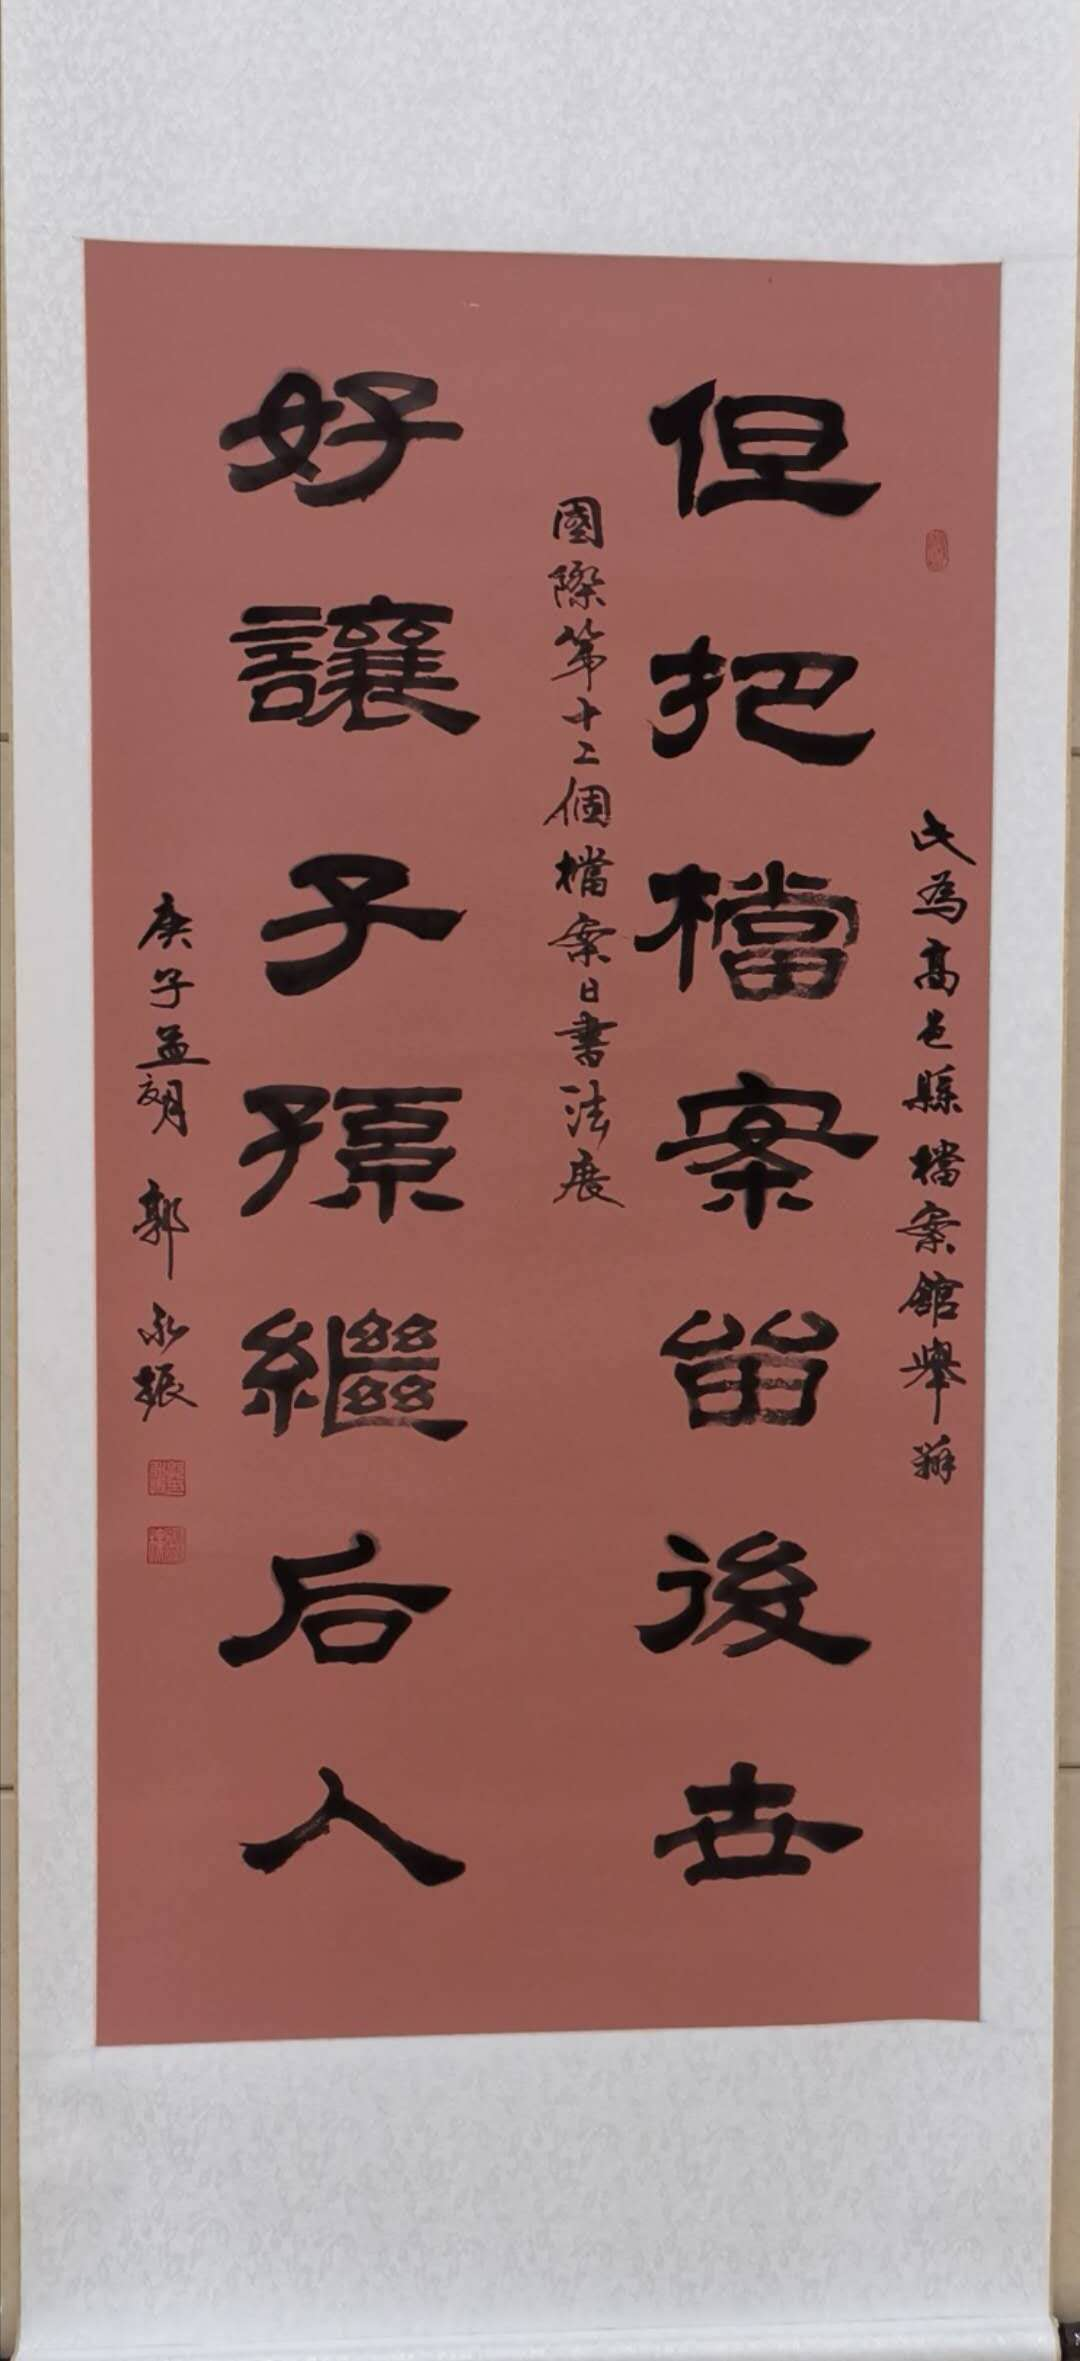 為高邑縣檔案館舉辦
但把檔案留後世
國際第十二個檔案日書法展
好讓子孫繼后人
庚子孟夏月 郭永振